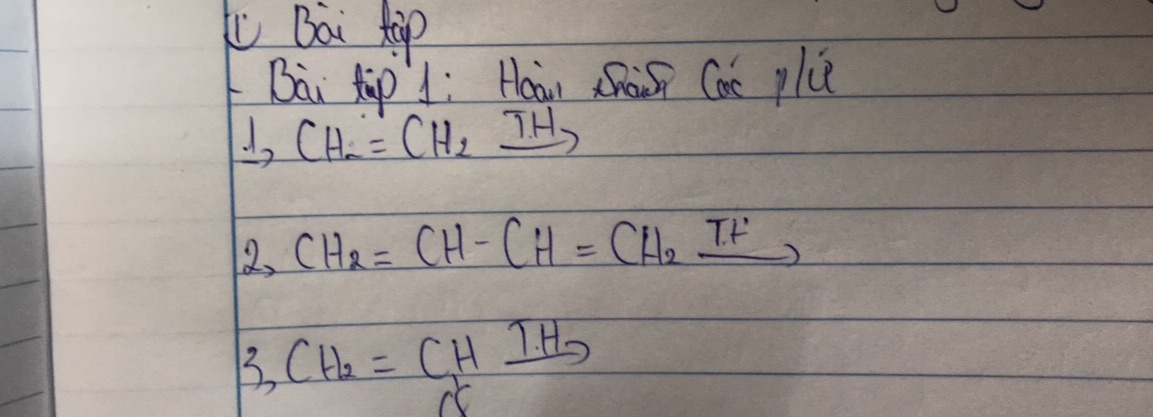 Bài tập
- Bài tập 1: Hoàn thành Các p/ứ
1, CH2 = CH2 T.H →
2, CH2 = CH - CH = CH2 T.H →
3, CH2 = CH T.H →